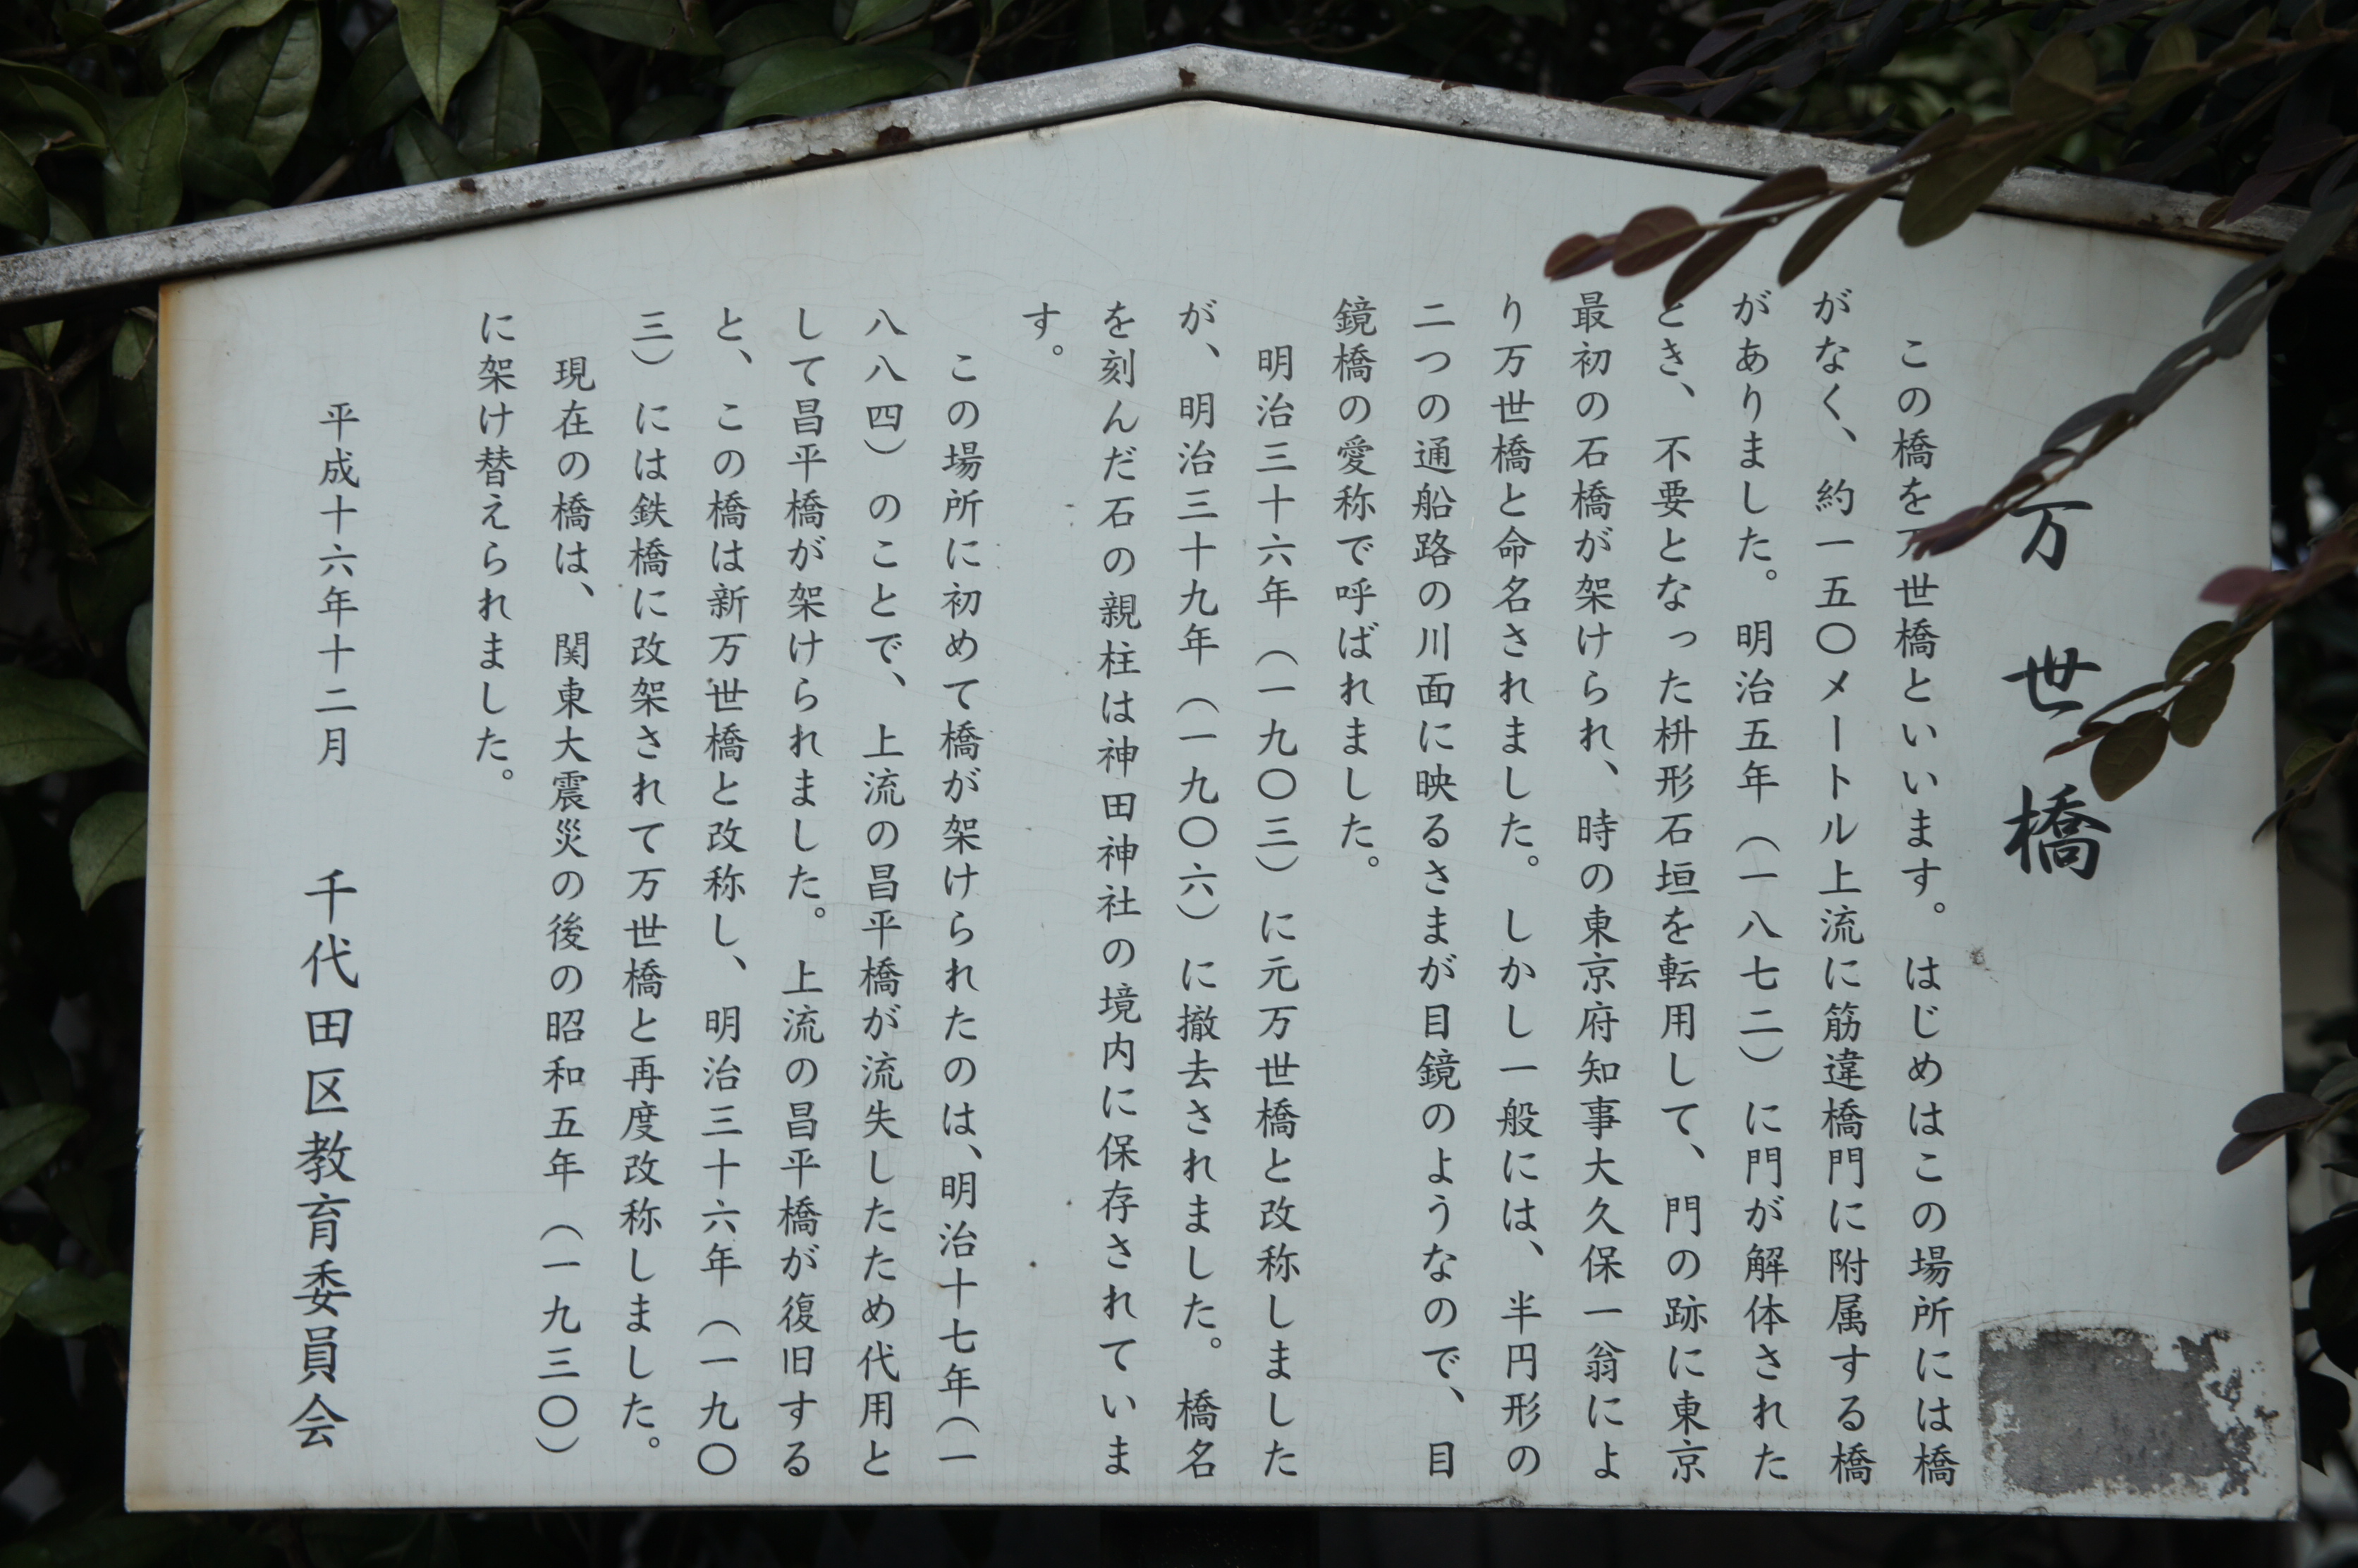 万世橋
この橋を万世橋といいます。はじめはこの場所には橋
がなく、約一五〇メートル上流に筋違橋門に附属する橋
がありました。明治五年（一八七二）に門が解体された
とき、不要となった枡形石垣を転用して、門の跡に東京
最初の石橋が架けられ、時の東京府知事大久保一翁によ
り万世橋と命名されました。しかし一般には、半円形の
二つの通船路の川面に映るさまが目鏡のようなので、目
鏡橋の愛称で呼ばれました。
明治三十六年（一九〇三）に元万世橋と改称しました
が、明治三十九年（一九〇六）に撤去されました。橋名
を刻んだ石の親柱は神田神社の境内に保存されていま
す。
この場所に初めて橋が架けられたのは、明治十七年（一
八八四）のことで、上流の昌平橋が流失したため代用と
して昌平橋が架けられました。上流の昌平橋が復旧する
と、この橋は新万世橋と改称し、明治三十六年（一九〇
三）には鉄橋に改架されて万世橋と再度改称しました。
現在の橋は、関東大震災の後の昭和五年（一九三〇）
に架け替えられました。
平成十六年十二月　千代田区教育委員会